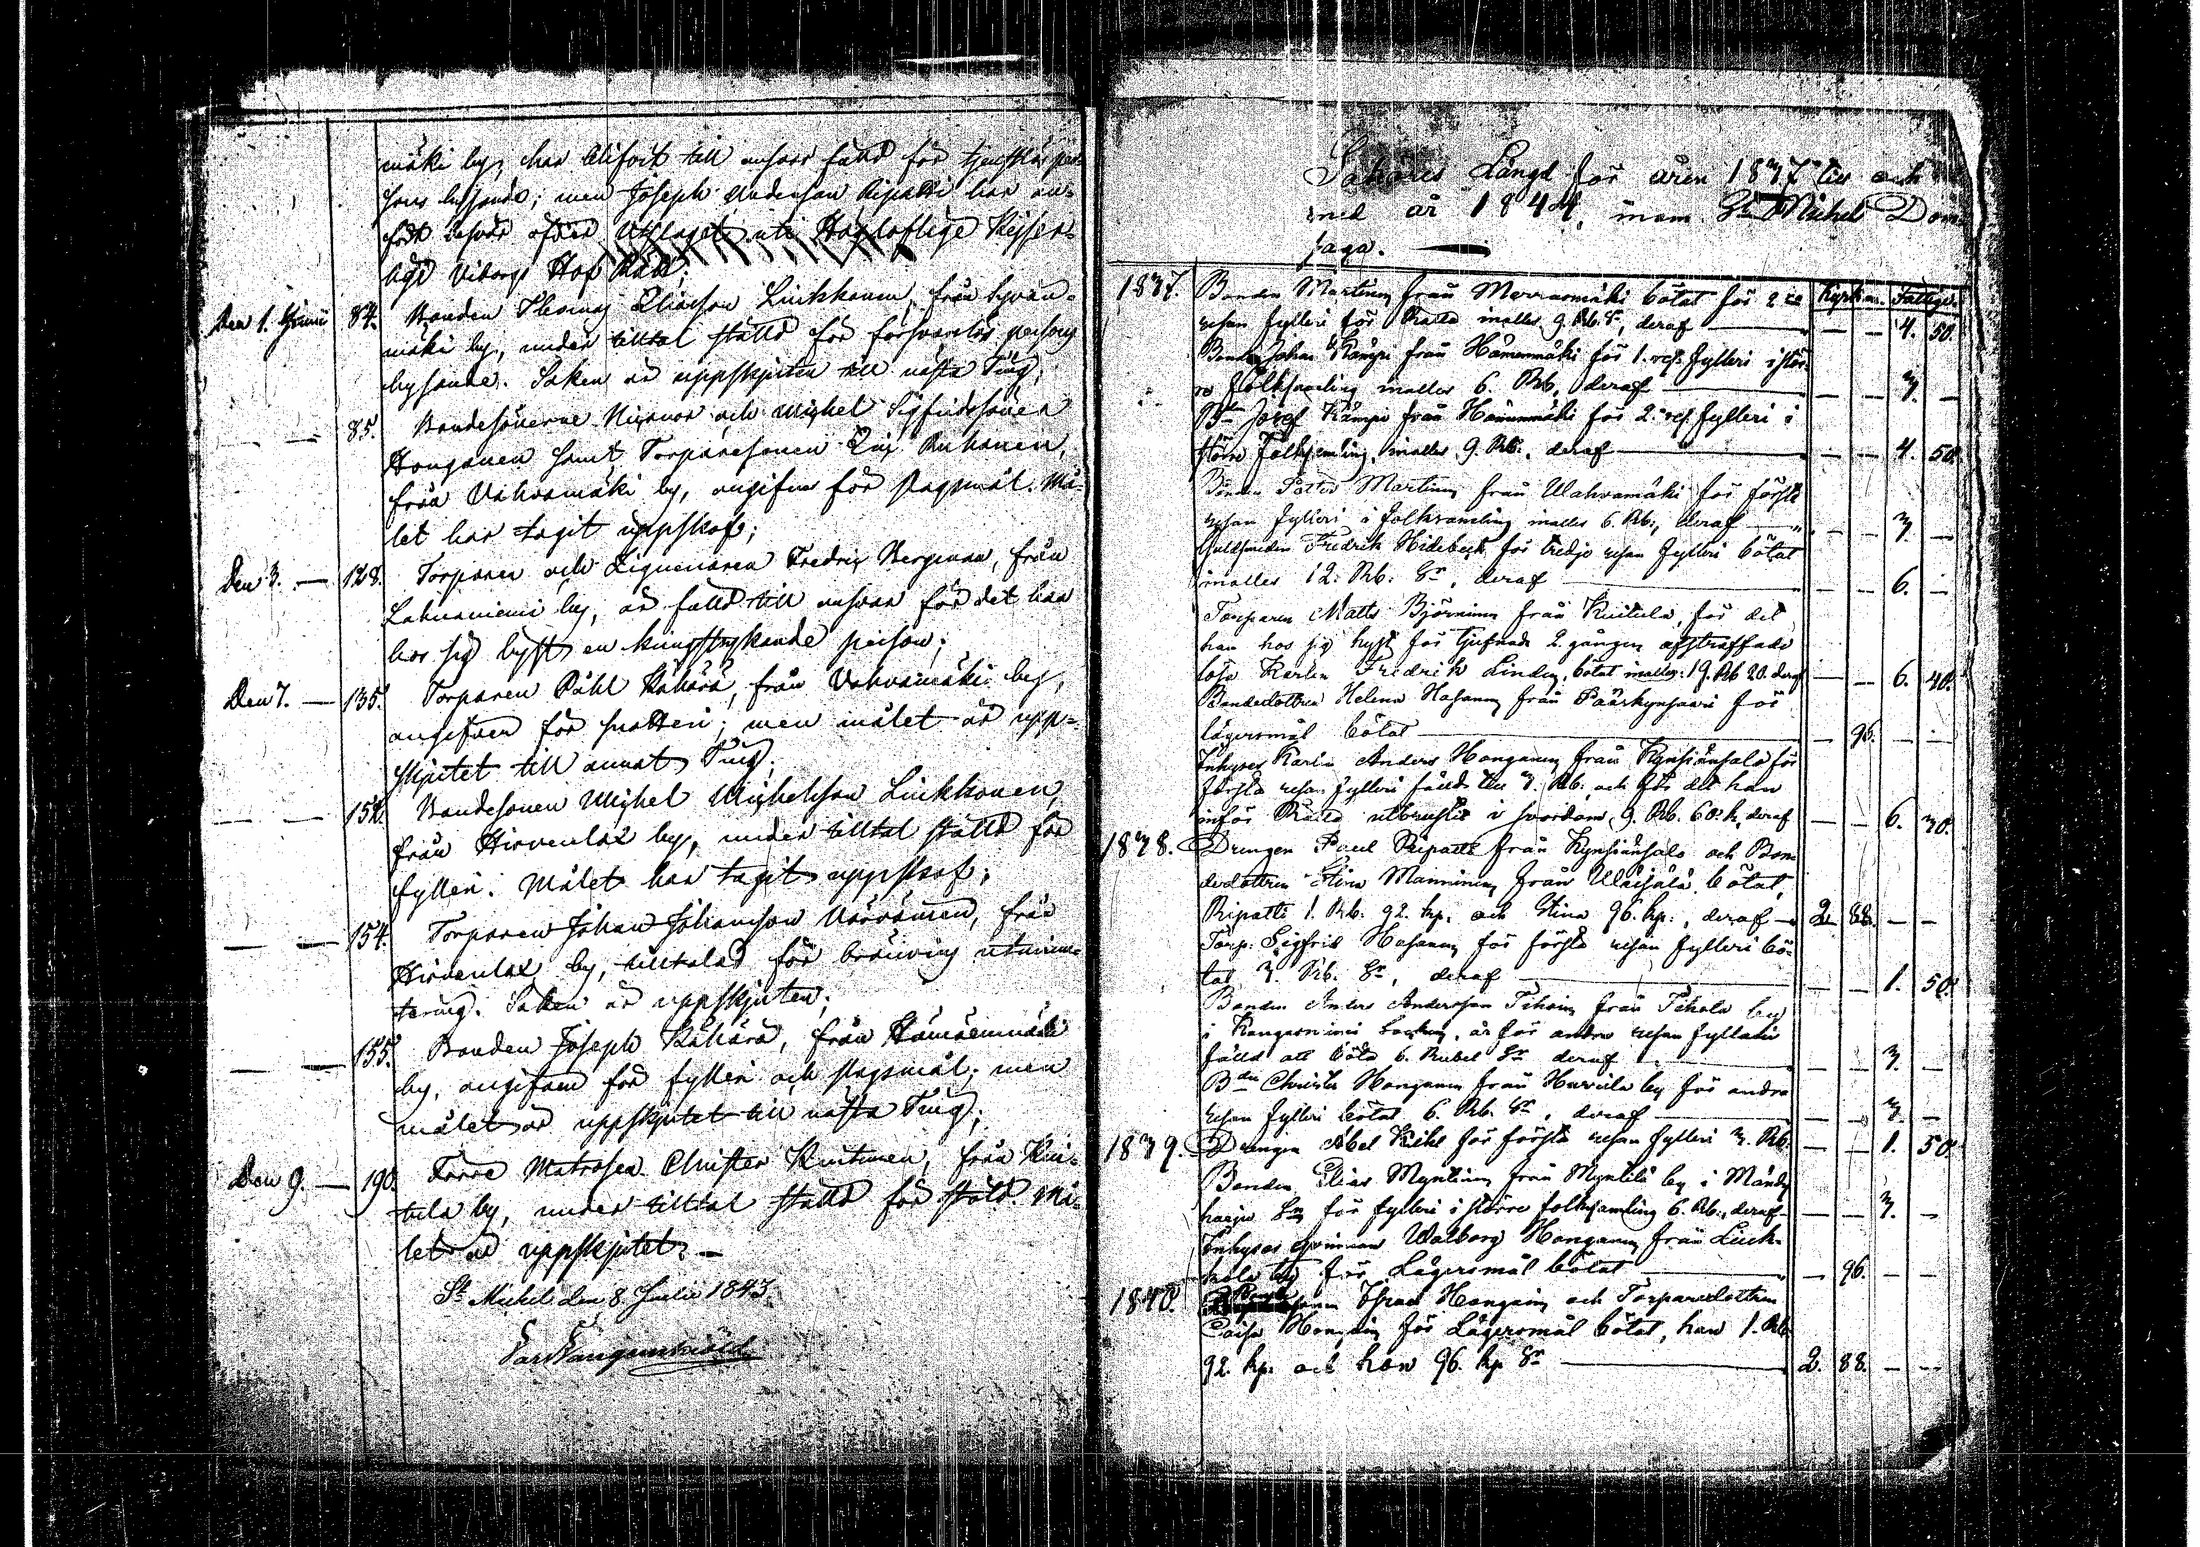 mäki by, har blifvit till ansvar fälld för tjenstlös per-
sons hysande; men Joseph Andersson Ripatti har an-
fört besvär öfver utslaget uti Högloflige Kejser-
lige Viborgs Hof Rätt;
Den 1. 84. Bonden Thomas Eliasson Liukkonen, från
mäki by, under tilltal ställd för försvarslös persons
hysande. Saken är uppskjuten till nästa Ting;
— — 85. Bondesönerne och Michel Sigfridssöner
Honganen samt Torparesonen Ruhanen,
från Vahvamäki by, angifne för slagsmål. Må-
let har tagit uppskof;
Den 3. — 128. Torparen och Ligomannen Fredric Bergman, från
Lahnaniemi by, är fälld till ansvar för det han
hos sig hyst en kringstrykande person;
Den 7. — 135. Torparen Påhl Kähärä, från Vahvamäki by,
angifven för snatteri; men målet är upp-
skjutet till annat Ting;
— — 152. Bondesonen Michel Michelsson Liukkonen,
från Hirvenlax by, under tilltal ställd för
fylleri. Målet har tagit uppskof;
— — 154. Torparen Johan Johansson från
Hirvenlax by, tilltalad för bränvins utminu-
tering. Saken är uppskjuten;
— — 155. Bonden Joseph Kähärä, från Hämäenmäki
by, angifven för fylleri och slagsmål; men
målet är uppskjutet till nästa Ting;
Den 9. — 190. Förre Matrosen Christer Kuitunen, från Kui-
tula by, under tilltal ställd för stöld. Må-
let är uppskjutet. —
St Michel den 8 Julii 1843.
Saköres Längd för åren 1837 till och
med år 1844, inom St Michels Dom
saga.
1837. Bonden Martinen från för 2dra Kyrkan. Fattige.
resan fylleri för Rätta 9. Rb. Sr, deraf — — — 4. 50.
Bonden Johan Kämpi från Hämenmäki för 1. res. fylleri i stör-
re folksamling 6. Rb. deraf — — — 3. —
Bdn Josef Kämpi från Hämenmäki för 2. res. fylleri i
större folksamling, 9. Rb. deraf — — — 4. 50.
Bonden Petter Martinen från Wahvamäki för första
resan fylleri i folksamling 6. Rb., deraf — — — 3. —
Guldsmeden Fredrik Hidebeck för tredje resan fylleri bötat
12. Rb. Sr, deraf — — — 6. —
Torparen Matts Björninen från Kuitula, för det
han hos sig hyst för tjufnad 2 gången afstraffade
lösa Karlen Fredrik Linden, bötat 19. Rb 20. deraf — — 6. 40.
Bondedottren Helena Hasanen från Päärkynsaari för
lägersmål bötat — — 96. — —
Inhyses Karlen Anders Honganen från Kynsiänsalo för
första resan fylleri fälld till 3. Rb. och för det han
inför Rätta utbrustit i svordom, 9. Rb. 60. k, deraf — — 6. 30.
1838. Drengen Paul Ripatti från Kynsiänsalo och Bon-
dedottren Stina Manninen från bötat,
Ripatti 1. Rb. 92. kp. och Stina 96. kp., deraf — 2 88. — —
Torp. Sigfrid Hasanen för första resan fylleri bö-
tat 3. Rb. Sr, deraf — — — 1. 50.
Bonden Anders Andersson Tihoin från Tihola by
i Kangasniemi Socken, är för andra resan fylleri
fälld att böta 6. Rubel Sr deraf — — — 3. —
Bdn Christer Honganen från by för andra
resan fylleri bötat 6. Rb. Sr, deraf — — — 3. —
1839. Drengen Abel Kihl för första resan fylleri 3. Rb. — — 1. 50.
Bonden Elias Myntinen från Mynttilä by i Mändy-
harju Sn för fylleri i större folksamling 6. Rb., deraf — — — 3. —
Inhyses qvinnan Walborg Honganen från Liuk-
kola by för Lägersmål bötat — — 96. — —
1840. Esrac Honganen och Torparedottren
Caisa Honganen för Lägersmål bötat, han 1. Rb
92. kp. och hon 96. kp Sr — 2. 88. — —